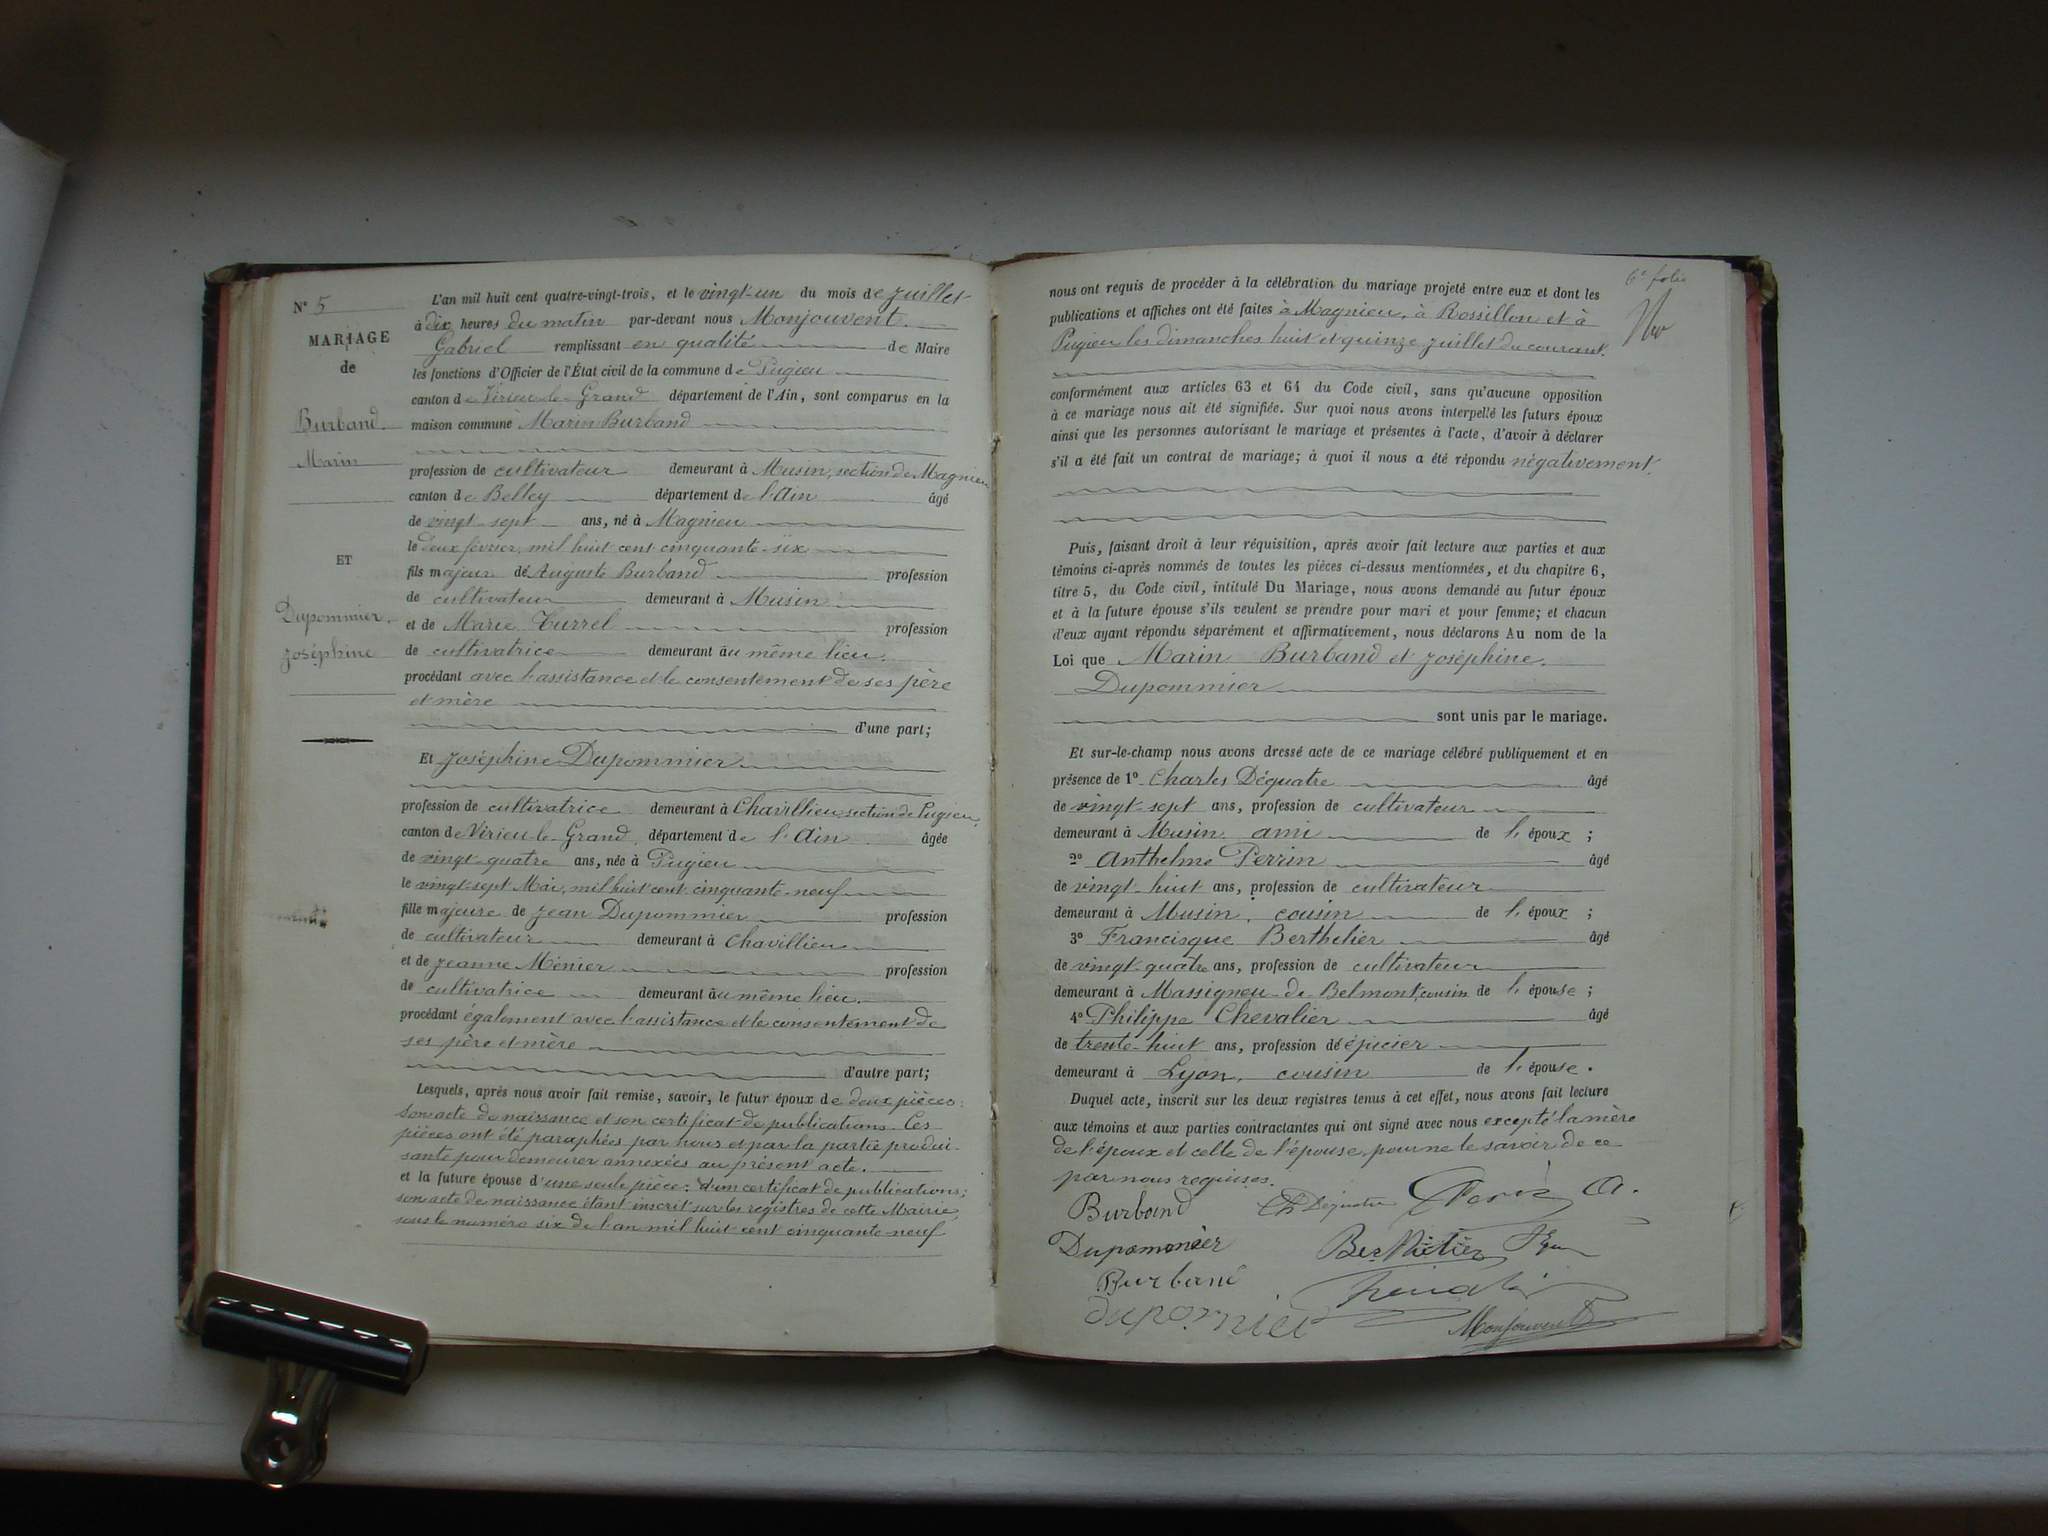 N° 5
MARIAGE
de
Burband
Marin
ET
Dupommier
Joséphine
L'an mil huit cent quatre-vingt-trois, et le vingt-un du mois de juillet
à dix heures du matin par-devant nous Monjouvent
Gabriel remplissant en qualité de Maire
les fonctions d'Officier de l'État civil de la commune de Pugieu
canton de Virieu-le-Grand département de l'Ain, sont comparus en la
maison commune Marin Burband
profession de cultivateur demeurant à Musin, section de Magnieu
canton de Belley département de l'Ain âgé
de vingt-sept ans, né à Magnieu
le deux février, mil huit cent cinquante-six
fils majeur de Auguste Burband profession
de cultivateur demeurant à Musin
et de Marie Turrel profession
de cultivatrice demeurant au même lieu.
procédant avec l'assistance et le consentement de ses père
et mère
d'une part;
Et Joséphine Dupommier
profession de cultivatrice demeurant à Chavillieu, section de Pugieu,
canton de Virieu-le-Grand, département de l'Ain âgée
de vingt-quatre ans, née à Pugieu
le vingt-sept Mai, mil huit cent cinquante-neuf
fille majeure de Jean Dupommier profession
de cultivateur demeurant à Chavillieu
et de Jeanne Ménier profession
de cultivatrice demeurant au même lieu.
procédant également avec l'assistance et le consentement de
ses père et mère
d'autre part;
Lesquels, après nous avoir fait remise, savoir, le futur époux de deux pièces:
son acte de naissance et son certificat de publications. Ces
pièces ont été paraphées par nous et par la partie produi-
sante pour demeurer annexées au présent acte.
et la future épouse d'une seule pièce: d'un certificat de publications;
son acte de naissance étant inscrit sur les registres de cette Mairie,
sous le numéro six de l'an mil huit cent cinquante-neuf
6e folio
nous ont requis de procéder à la célébration du mariage projeté entre eux et dont les
publications et affiches ont été faites à Magnieu, à Rossillon et à
Pugieu les dimanches huit et quinze juillet du courant.
conformément aux articles 63 et 64 du Code civil, sans qu'aucune opposition
à ce mariage nous ait été signifiée. Sur quoi nous avons interpellé les futurs époux
ainsi que les personnes autorisant le mariage et présentes à l'acte, d'avoir à déclarer
s'il a été fait un contrat de mariage; à quoi il nous a été répondu négativement.
Puis, faisant droit à leur réquisition, après avoir fait lecture aux parties et aux
témoins ci-après nommés de toutes les pièces ci-dessus mentionnées, et du chapitre 6,
titre 5, du Code civil, intitulé Du Mariage, nous avons demandé au futur époux
et à la future épouse s'ils veulent se prendre pour mari et pour femme; et chacun
d'eux ayant répondu séparément et affirmativement, nous déclarons Au nom de la
Loi que Marin Burband et Joséphine
Dupommier
sont unis par le mariage.
Et sur-le-champ nous avons dressé acte de ce mariage célébré publiquement et en
présence de 1° Charles Déquatre âgé
de vingt-sept ans, profession de cultivateur
demeurant à Musin, ami de l'époux;
2° Anthelme Perrin âgé
de vingt-huit ans, profession de cultivateur
demeurant à Musin, cousin de l'époux;
3° Francisque Berthelier âgé
de vingt-quatre ans, profession de cultivateur
demeurant à Massigneu-de-Belmont, cousin de l'épouse;
4° Philippe Chevalier âgé
de trente-huit ans, profession d'épicier
demeurant à Lyon, cousin de l'épouse.
Duquel acte, inscrit sur les deux registres tenus à cet effet, nous avons fait lecture
aux témoins et aux parties contractantes qui ont signé avec nous excepté la mère
de l'époux et celle de l'épouse pour ne le savoir de ce
par nous requises.
Burband Ch Déquatre A.
Dupommier
Burband
dupomier
Monjouvent